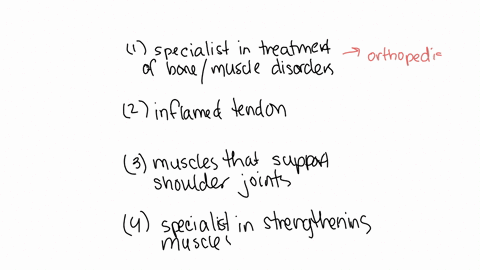 (1) specialist in treatment → orthopedic
of bone/muscle disorders
(2) inflamed tendon
(3) muscles that support
shoulder joints
(4) specialist in strengthening
muscles